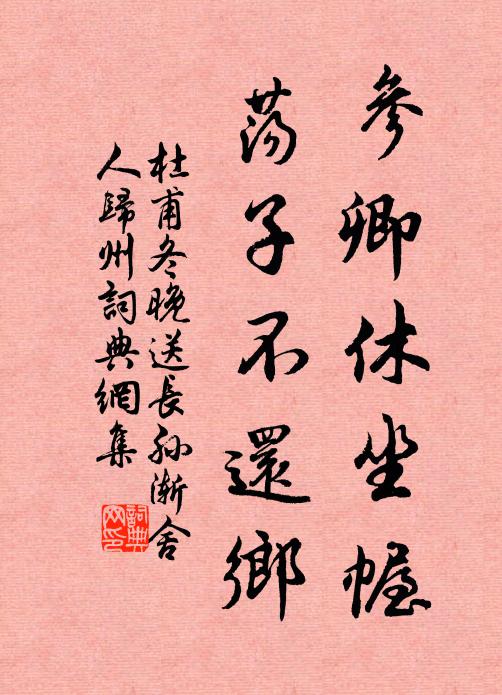 參卿休坐幄
蕩子不還鄉
杜甫冬晚送長孫漸舍
人歸州詞典網集
詞典
網印